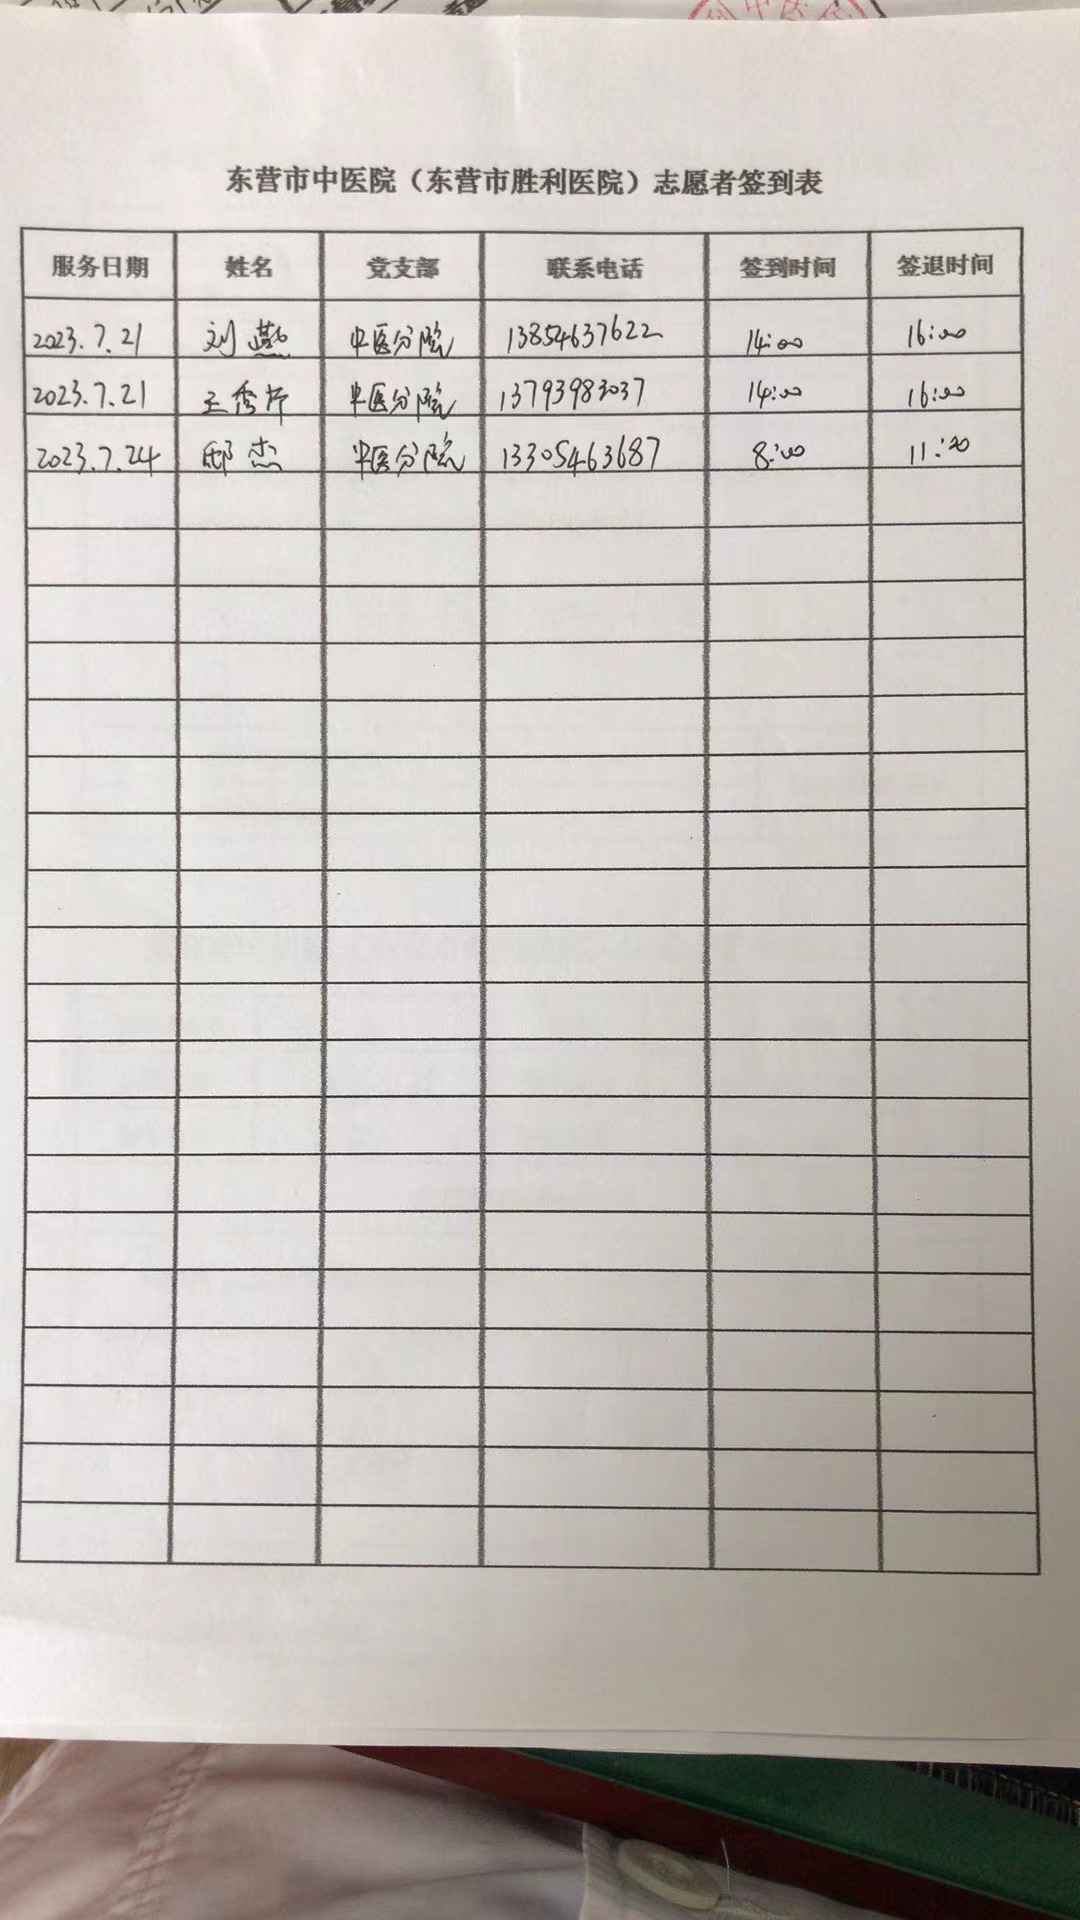 东营市中医院（东营市胜利医院）志愿者签到表
服务日期 姓名 党支部 联系电话 签到时间 签退时间
2023.7.21 刘 中医分院 13854637622 14:00 16:00
2023.7.21 王秀芹 中医分院 13793983037 14:00 16:00
2023.7.24 邸杰 中医分院 13305463687 8:00 11:30